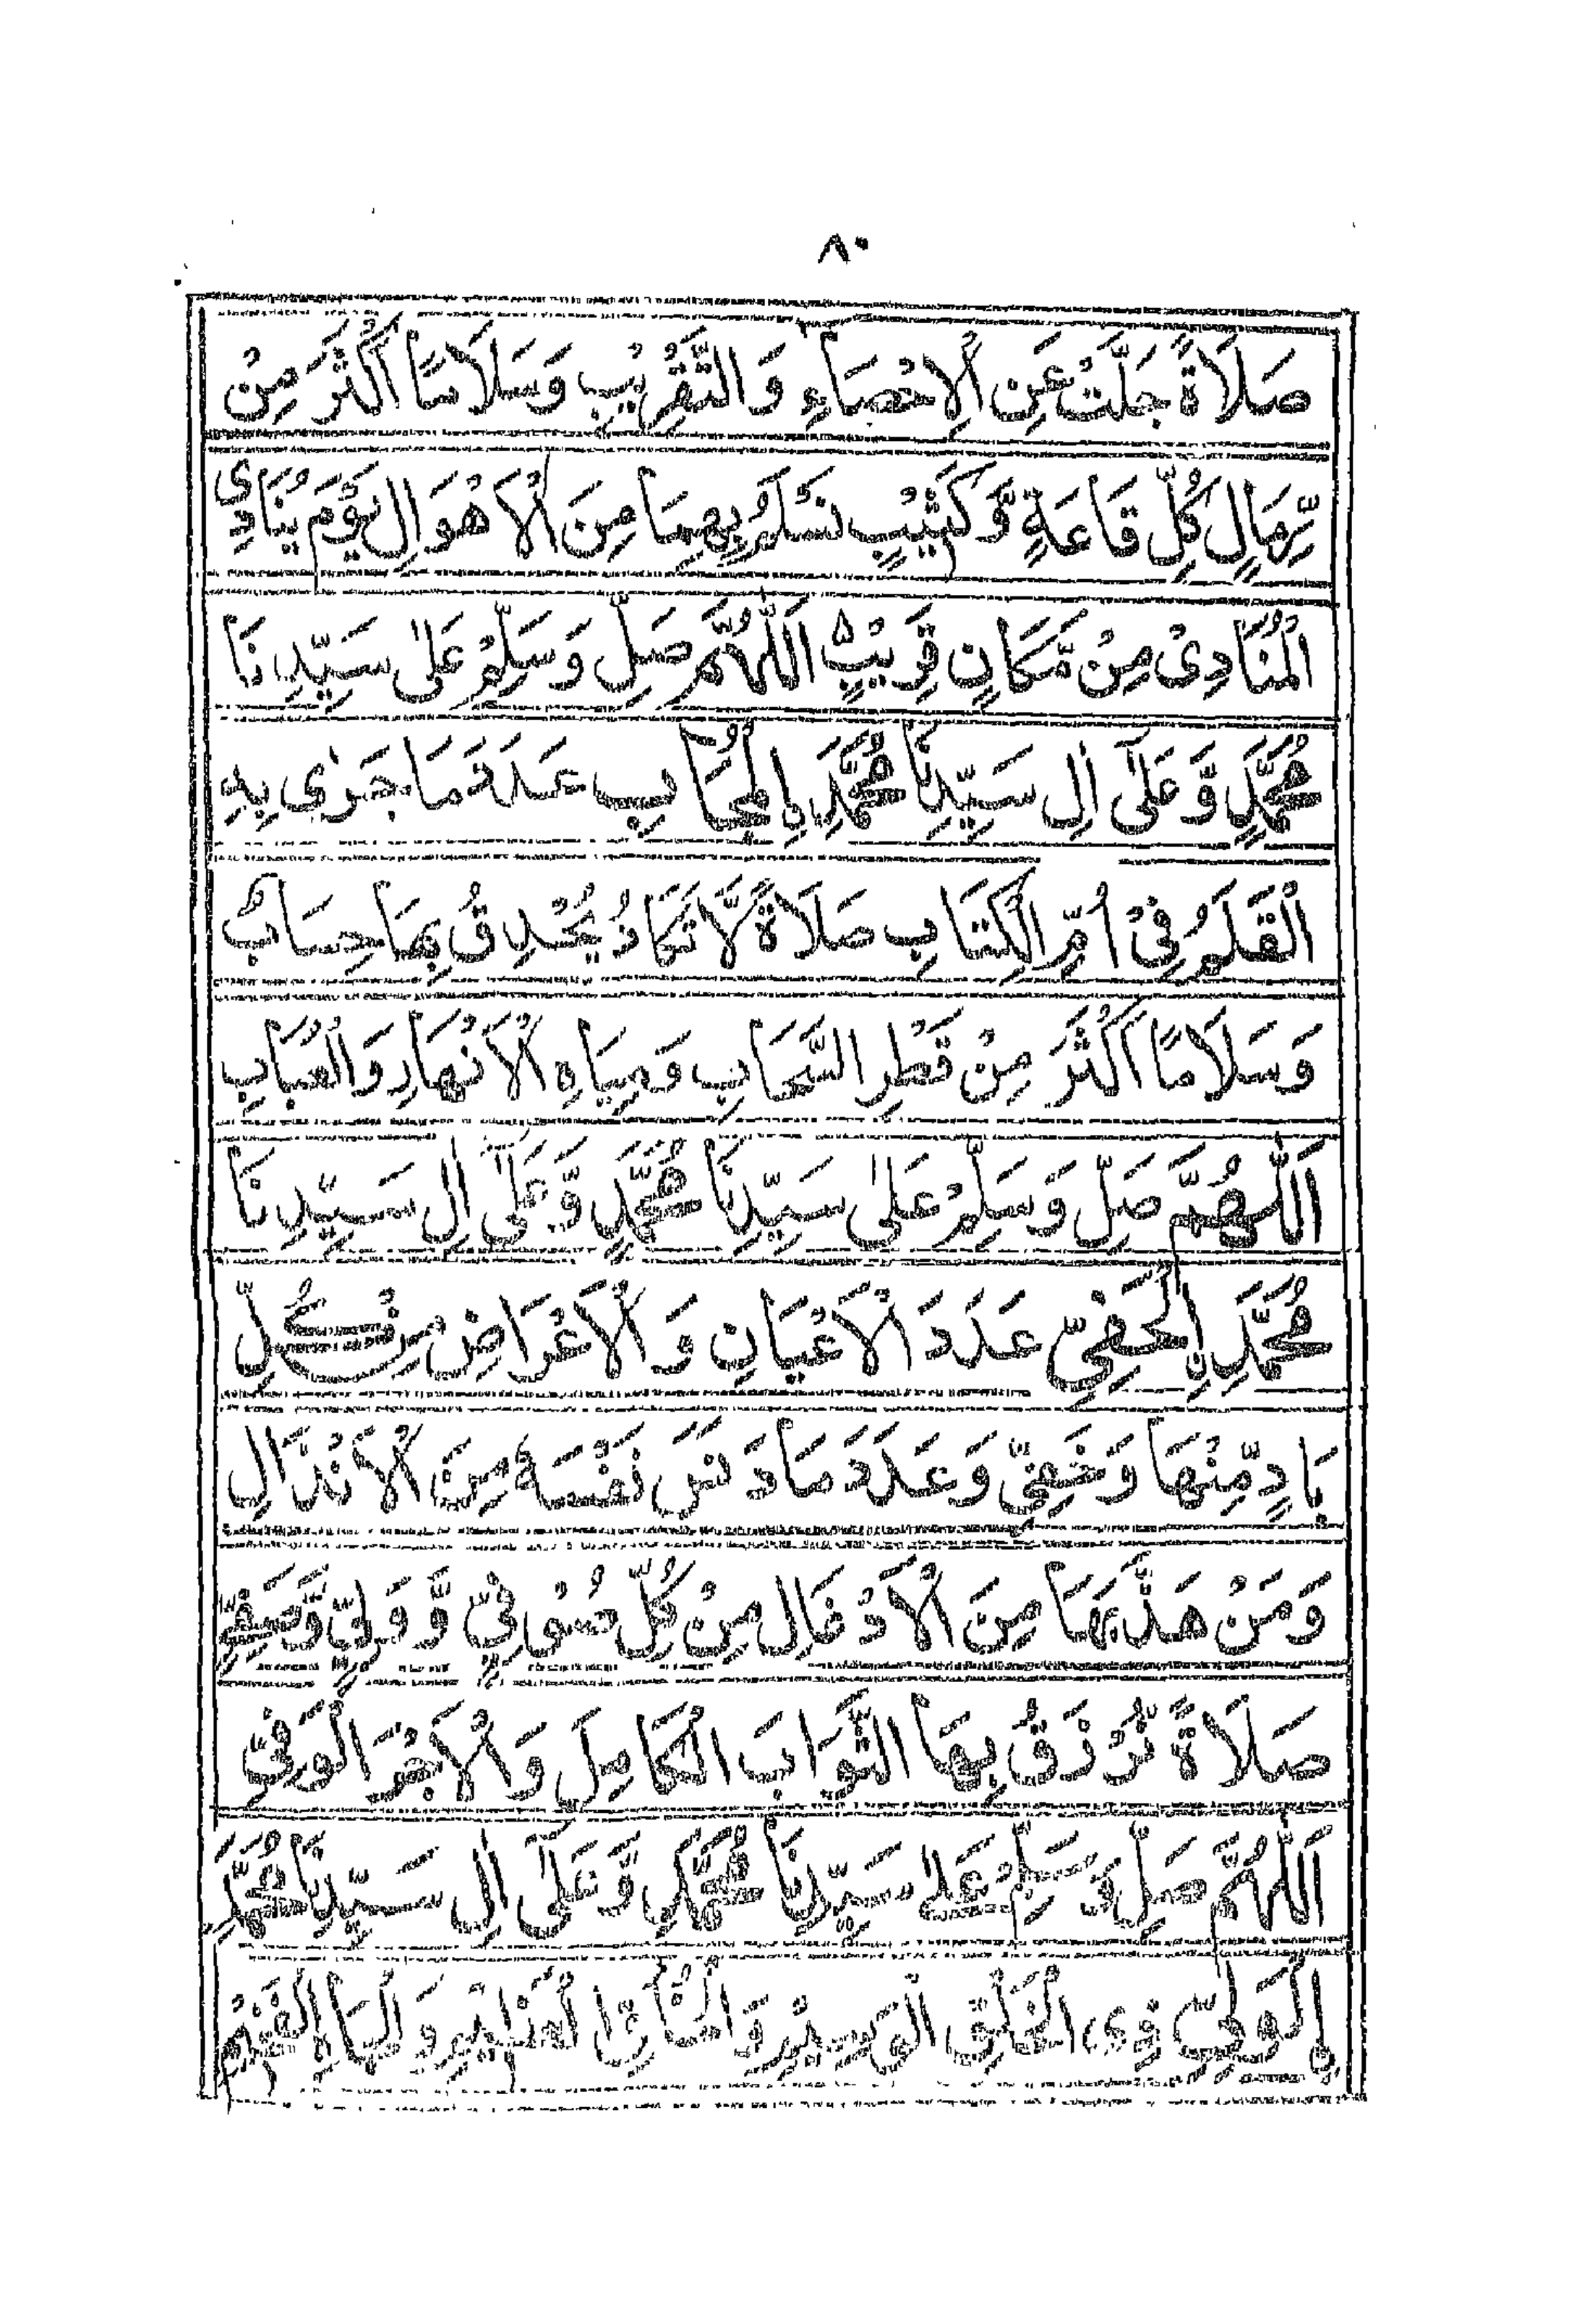 ٨٠
صَلَاةً جَلَّتْ عَنِ الْاِحْصَاءِ وَالتَّقْرِيْبِ وَسَلَامًا اَكْثَرَ مِنْ
رِّمَالِ كُلِّ قَاعَةٍ وَّكَثِيْبٍ نَسْلَمُ بِهِمَا مِنَ الْاَهْوَالِ يَوْمَ يُنَادِى
الْمُنَادِىْ مِنْ مَّكَانٍ قَرِيْبٍ اَللّٰهُمَّ صَلِّ وَسَلِّمْ عَلٰى سَيِّدِنَا
مُحَمَّدٍ وَّعَلٰٓى اٰلِ سَيِّدِنَا مُحَمَّدِ اِلْمُجَابِ عَدَدَ مَا جَرٰى بِهِ
الْقَلَمُ فِىْ اُمِّ الْكِتَابِ صَلَاةً لَّا تَكَادُ يُحْدِقُ بِهَا حِسَابٌ
وَسَلَامًا اَكْثَرَ مِنْ قَطْرِ السَّحَابِ وَمِيَاهِ الْاَنْهَارِ وَالْعُبَابِ
اَللّٰهُمَّ صَلِّ وَسَلِّمْ عَلٰى سَيِّدِنَا مُحَمَّدٍ وَّعَلٰٓى اٰلِ سَيِّدِنَا
مُحَمَّدِ نِ الْحَفِىِّ عَدَدَ الْاَعْيَانِ وَالْاَعْرَاضِ مِنْ كُلِّ
بَادٍ مِّنْهَا وَخَفِىٍّ وَعَدَدَ مَا دَنَّسَ نَفْسَهٗ مِنَ الْاَنْذَالِ
وَمَنْ هَذَّبَهَا مِنَ الْاَدْغَالِ مِنْ كُلِّ صُوْفِىٍّ وَّوَلِىٍّ وَّصَفِىٍّ
صَلَاةً نُرْزَقُ بِهَا الثَّوَابَ الْكَامِلَ وَالْاَجْرَ الْوَفِىَّ
اَللّٰهُمَّ صَلِّ وَسَلِّمْ عَلٰى سَيِّدِنَا مُحَمَّدٍ وَّعَلٰٓى اٰلِ سَيِّدِنَا مُحَمَّدِ
نِ الْوَلِىِّ ذِى الْخُلُقِ الْوَسِيْمِ وَالْخَلْقِ الْعَظِيْمِ وَالْجَاهِ الْفَخِيْمِ